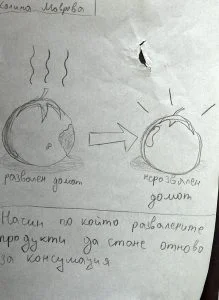 Калина Маврова
развален домат
неразвален
домат
Начин по който развалените
продукти да стане отново
за консумация